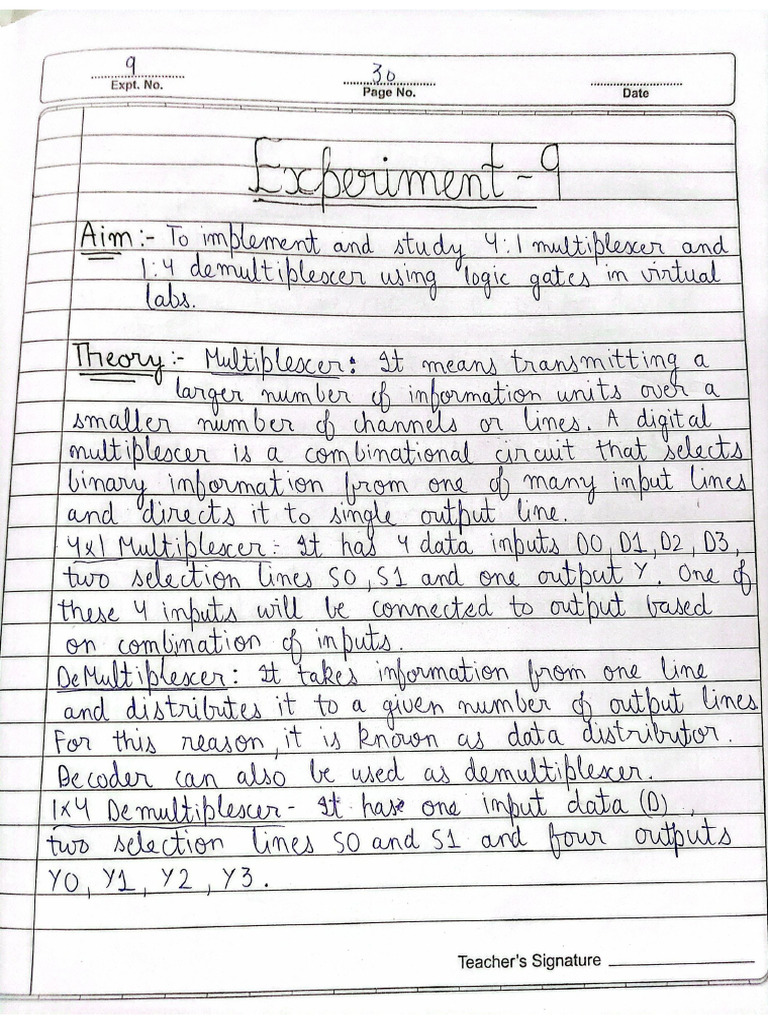 9 30
Expt. No. Page No. Date
Experiment - 9
Aim :- To implement and study 4:1 multiplexer and
1:4 demultiplexer using logic gates in virtual
labs.
Theory :- Multiplexer : It means transmitting a
larger number of information units over a
smaller number of channels or lines. A digital
multiplexer is a combinational circuit that selects
binary information from one of many input lines
and directs it to single output line.
4x1 Multiplexer :- It has 4 data inputs D0, D1, D2, D3,
two selection lines S0, S1 and one output Y. One of
these 4 inputs will be connected to output based
on combination of inputs.
DeMultiplexer : It takes information from one line
and distributes it to a given number of output lines
For this reason, it is known as data distributor.
Decoder can also be used as demultiplexer.
1x4 Demultiplexer - It has one input data (D),
two selection lines S0 and S1 and four outputs
Y0, Y1, Y2, Y3.
Teacher's Signature